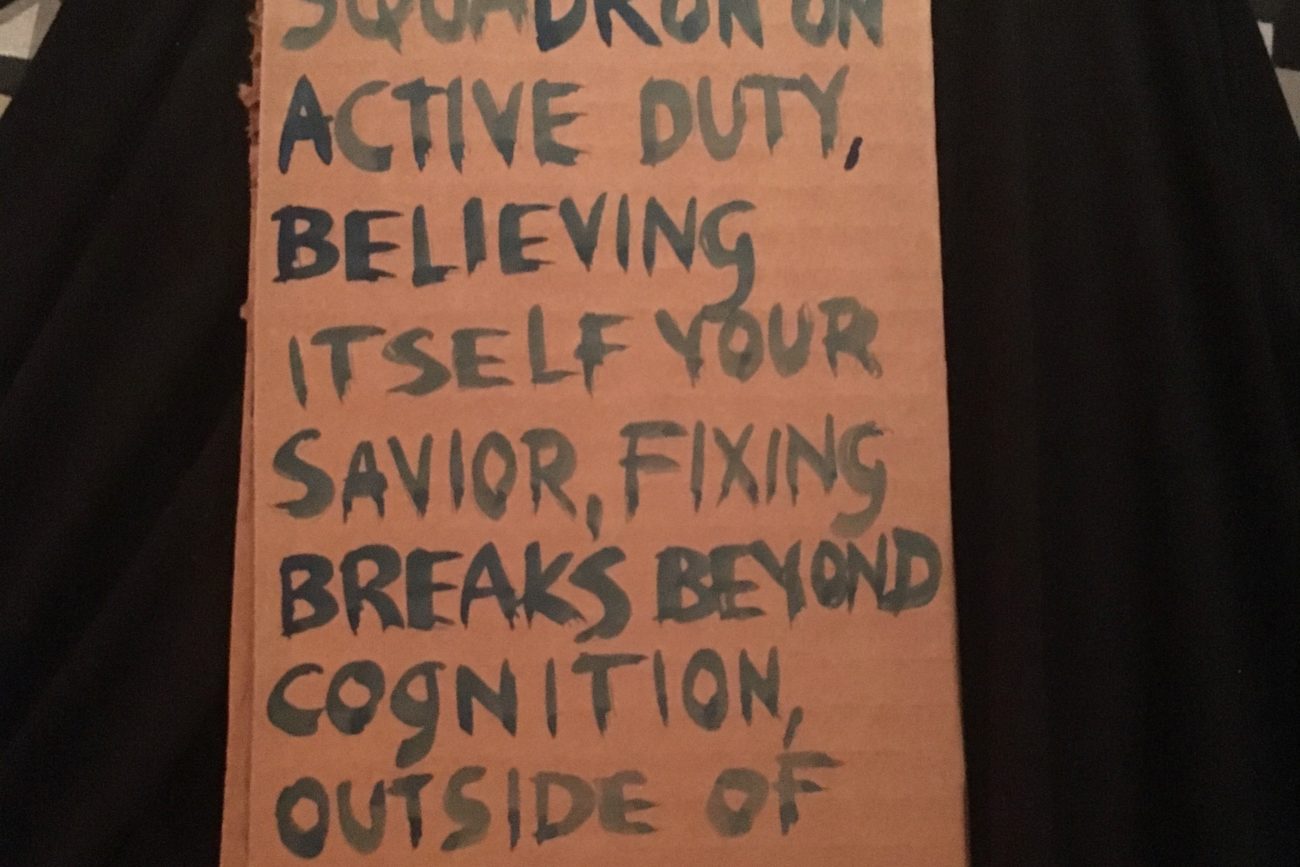 SQUADRON ON
ACTIVE DUTY,
BELIEVING
ITSELF YOUR
SAVIOR, FIXING
BREAKS BEYOND
COGNITION,
OUTSIDE OF